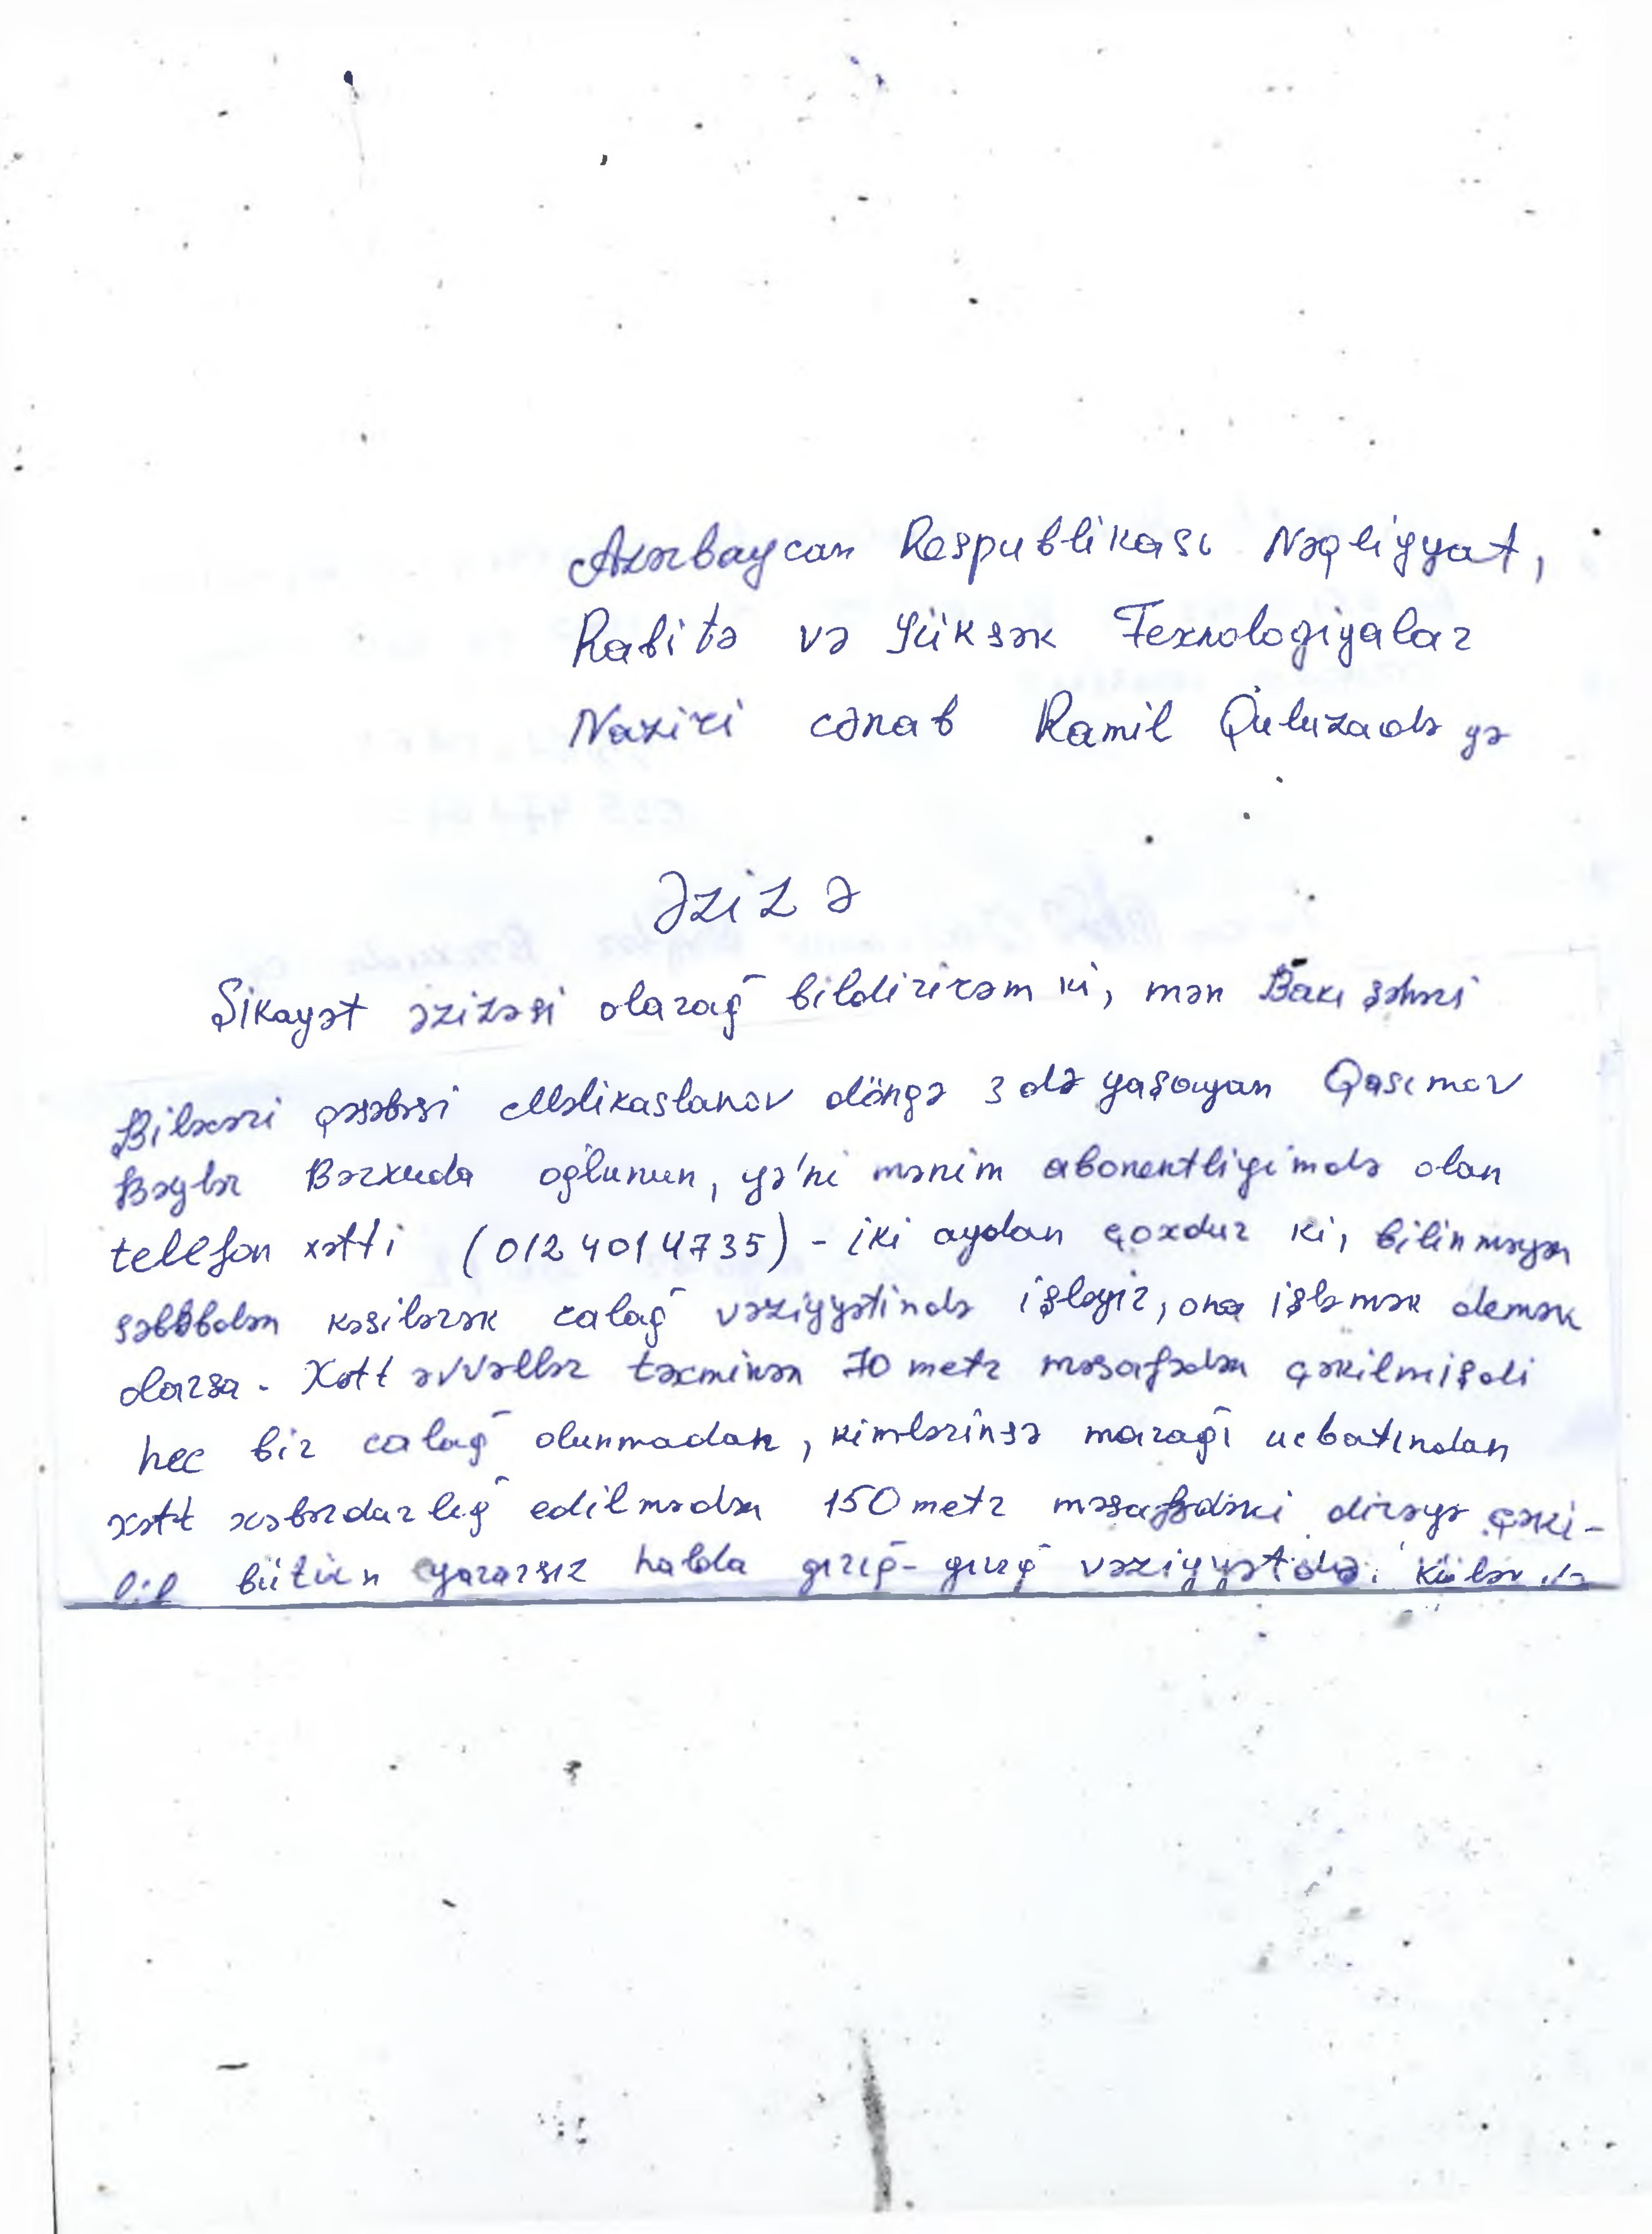 Azərbaycan Respublikası Nəqliyyat,
Rabitə və Yüksək Texnologiyalar
Naziri cənab Ramil Quluzadə yə
Ərizə
Şikayət ərizəsi olarağ bildirirəm ki, mən Bakı şəhəri
Biləcəri qəsəbəsi Məlikaslanov döngə 3 də yaşayan Qasımov
Bəylər Bərxuda oğlunun, yə'ni mənim abonentliyimdə olan
telefon xətti (012 401 47 35) - iki aydan çoxdur ki, bilinməyən
səbəbdən kəsilərək calağ vəziyyətində işləyir, ona işləmək demək
olarsa. Xətt əvvəllər təxminən 70 metr məsafədən çəkilmişdi
hec bir calağ olunmadan, kimlərinsə marağı ucbatından
xətt xəbərdarlığ edilmədən 150 metr məsafədəki dirəyə çəki-
lib bütün yararsız halda gırığ-gırığ vəziyyətdə.